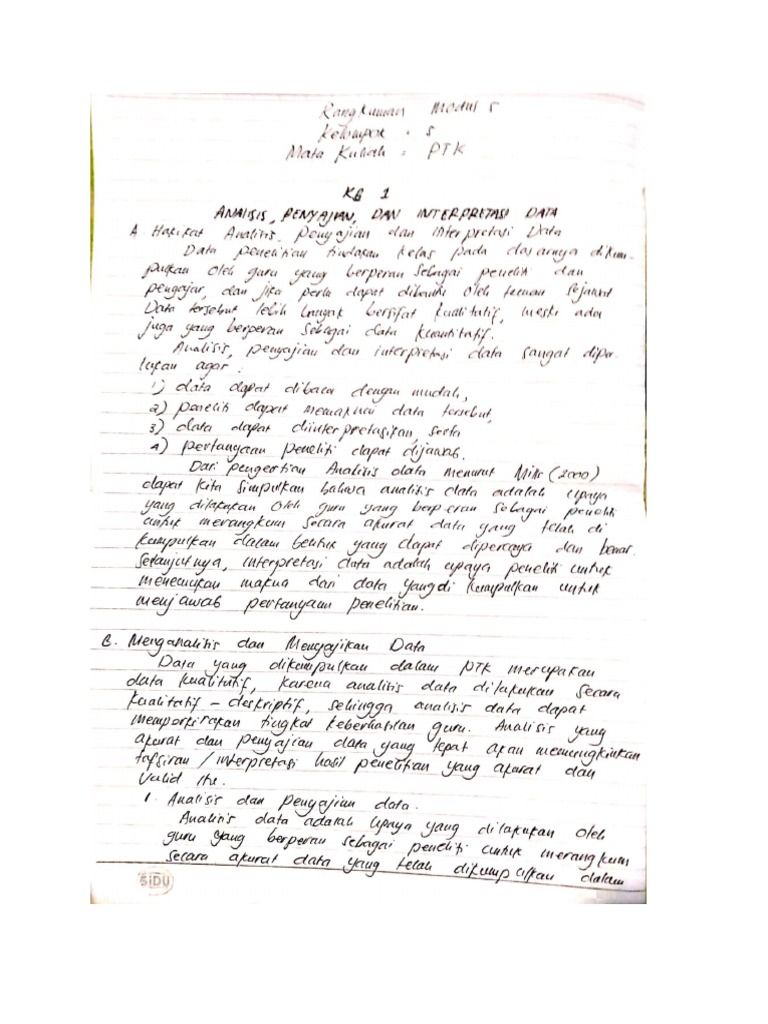 Rangkuman Modul 5
Kelompok : 5
Mata Kuliah : PTK
KB 1
ANALISIS, PENYAJIAN, DAN INTERPRETASI DATA
A. Hakikat Analisis, Penyajian dan Interpretasi Data
Data penelitian tindakan kelas pada dasarnya dikum-
pulkan oleh guru yang berperan sebagai peneliti dan
pengajar, dan jika perlu dapat dibantu oleh teman sejawat
Data tersebut lebih banyak bersifat kualitatif, meski ada
juga yang berperan sebagai data kuantitatif.
Analisis, penyajian dan interpretasi data sangat diper
lukan agar :
1) data dapat dibaca dengan mudah,
2) peneliti dapat memaknai data tersebut,
3) data dapat diinterpretasikan, serta
4) pertanyaan peneliti dapat dijawab.
Dari pengertian Analisis data menurut Mills (2000)
dapat kita simpulkan bahwa analisis data adalah upaya
yang dilakukan oleh guru yang berperan sebagai peneliti
untuk merangkum secara akurat data yang telah di
kumpulkan dalam bentuk yang dapat dipercaya dan benar.
Selanjutnya, interpretasi data adalah upaya peneliti untuk
menemukan makna dari data yang di kumpulkan untuk
menjawab pertanyaan penelitian.
B. Menganalisis dan Menyajikan Data
Data yang dikumpulkan dalam PTK merupakan
data kualitatif, karena analisis data dilakukan secara
kualitatif - deskriptif, sehingga analisis data dapat
memperkirakan tingkat keberhasilan guru. Analisis yang
akurat dan penyajian data yang tepat akan memungkinkan
tafsiran / interpretasi hasil penelitian yang akurat dan
valid itu.
1. Analisis dan penyajian data.
Analisis data adalah upaya yang dilakukan oleh
guru yang berperan sebagai peneliti untuk merangkum
secara akurat data yang telah dikumpulkan dalam
SIDU